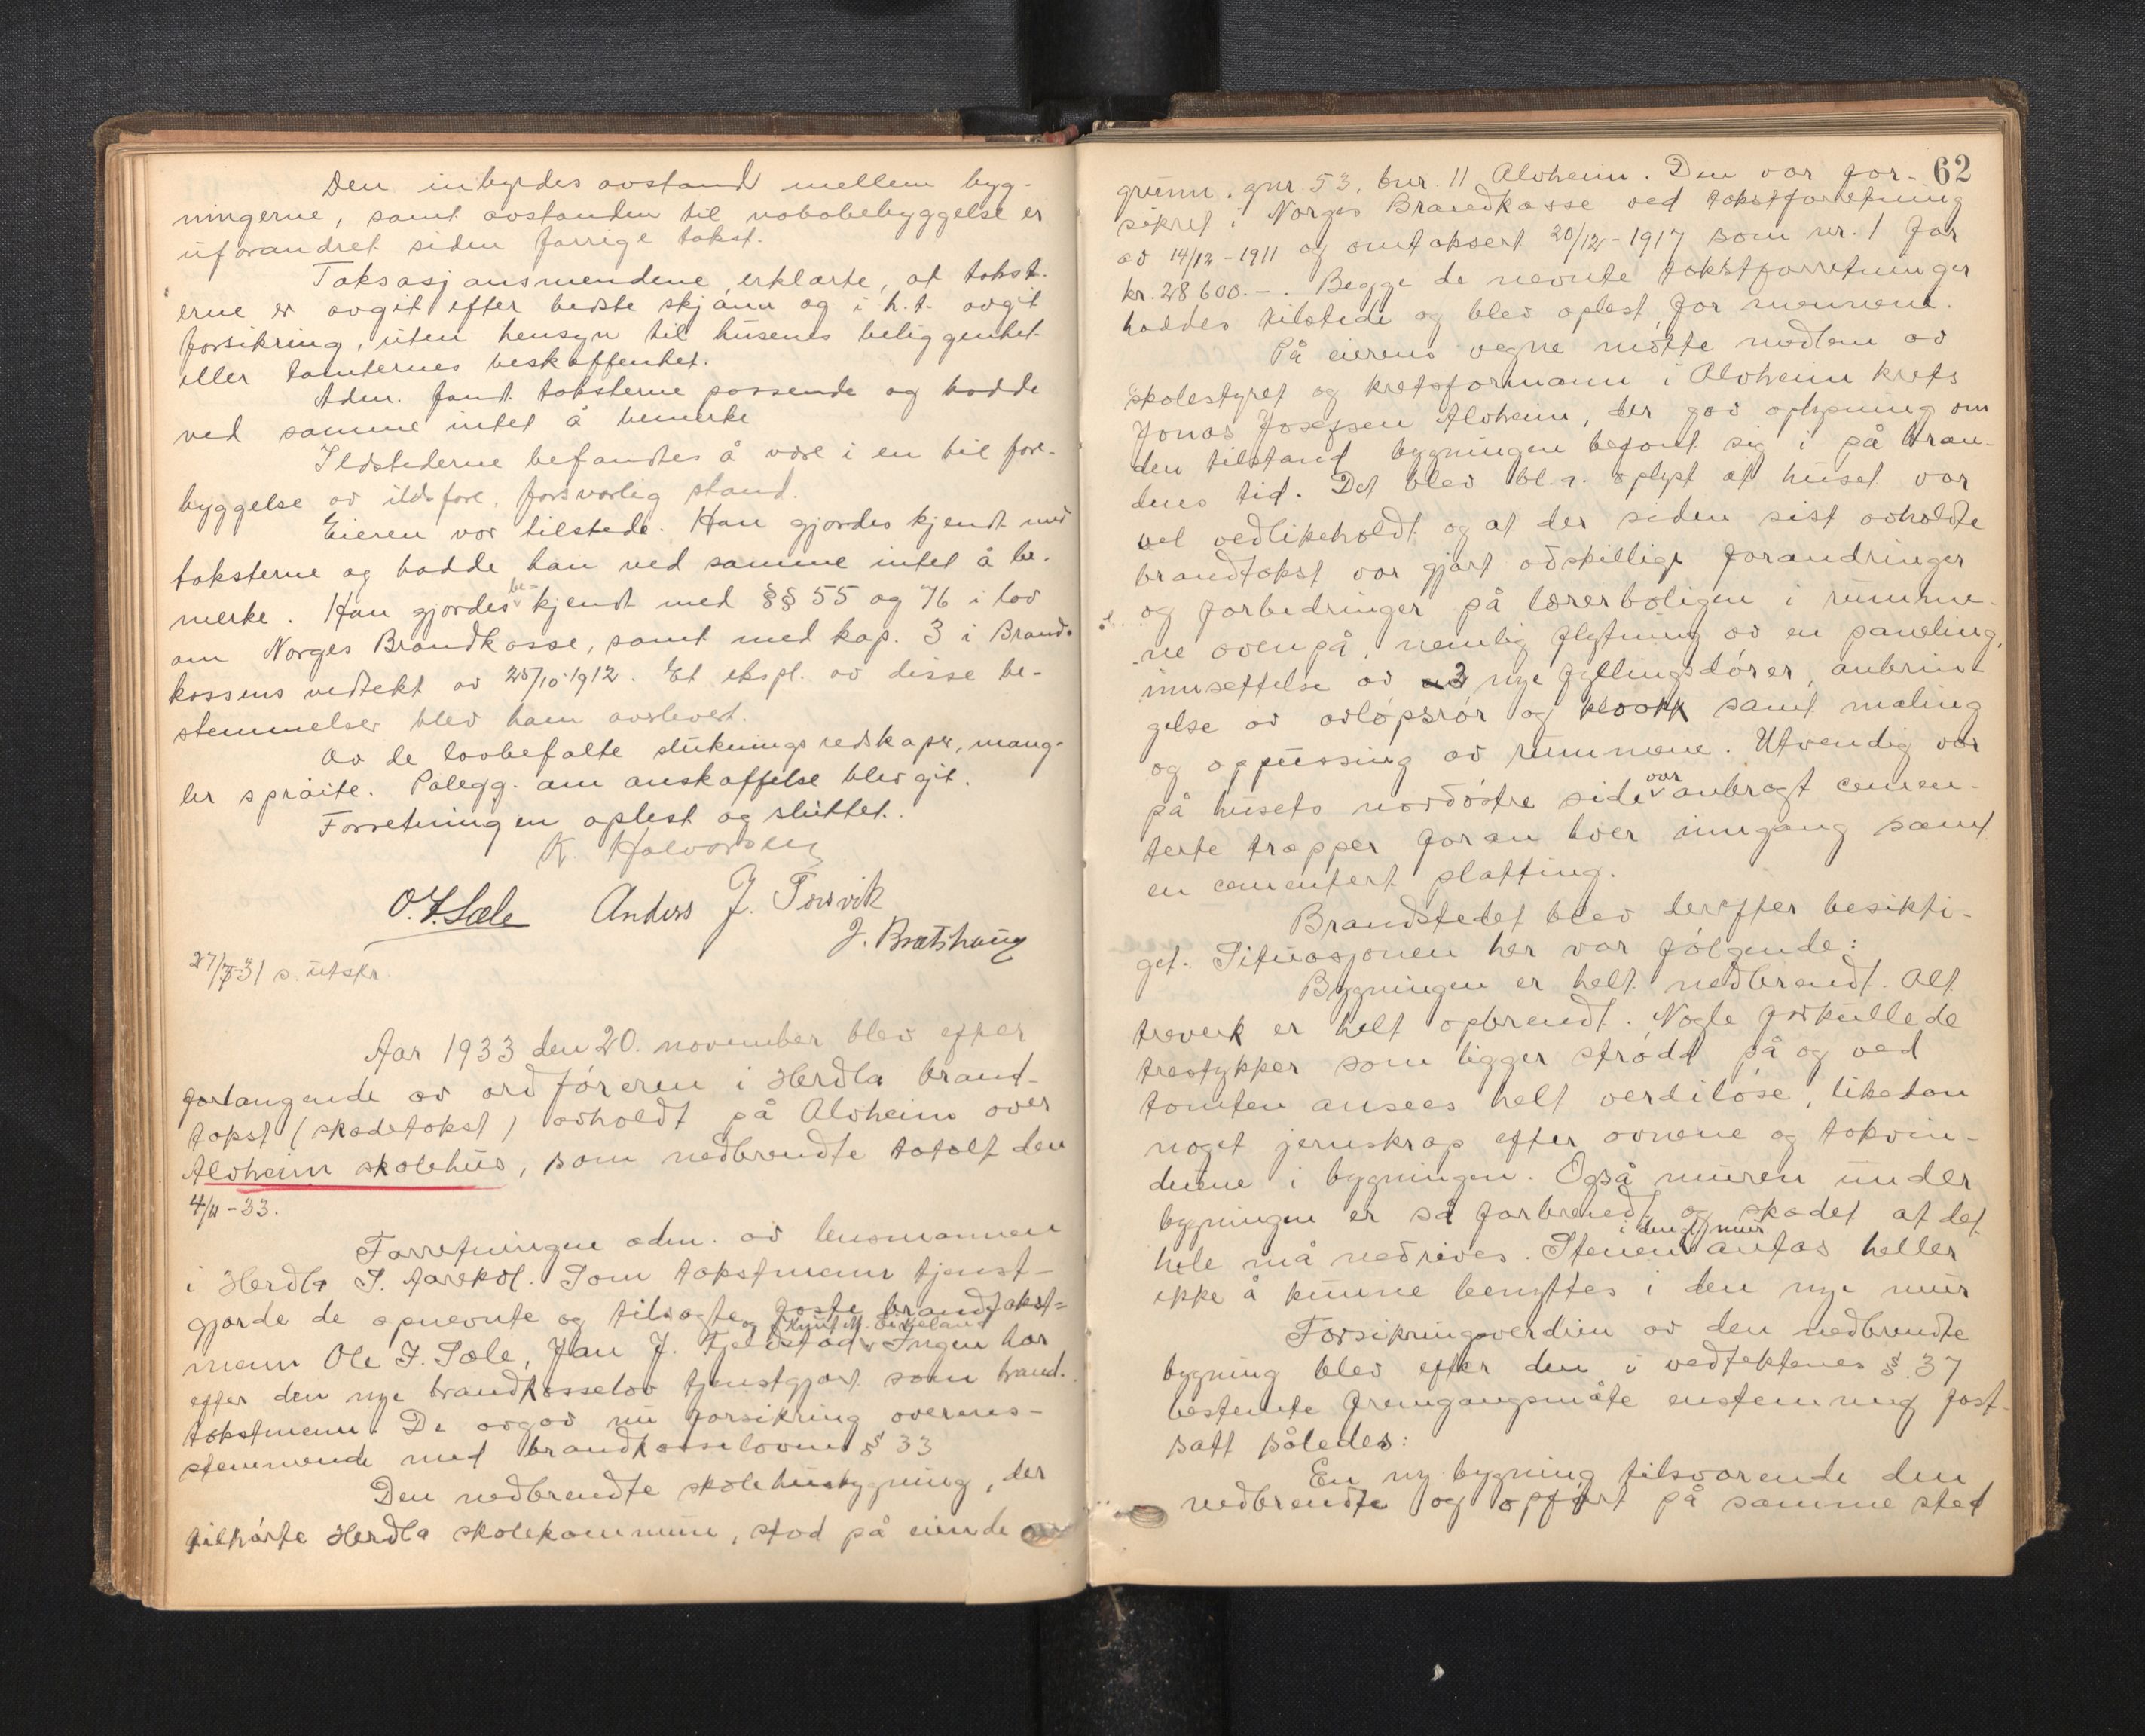 Den inbyrdes avstand mellem byg-
ningerne, samt avstanden til nabobebyggelse er
uforandret siden forrige takst.
Taksasjonsmendene erklærte, at takst-
erne er avgit efter bedste skjønn og i h.t. avgit
forsikring, uten hensyn til husenes beliggenhet
eller tomternes beskaffenhet.
Adm. fandt taksterne passende og hadde
ved samme intet å bemerke
Ildstederne befandtes å være i en til fore-
byggelse av ildsfare, forsvarlig stand.
Eieren var tilstede. Han gjordes kjendt med
taksterne og hadde han ved samme intet å be-
merke. Han gjordes be-kjendt med §§ 55 og 76 i lov
om Norges Brandkasse, samt med kap. 3 i Brand-
kassens vedtekt av 25/10 1912. Et ekspl. av disse be-
stemmelser blev ham avlevert.
Av de lovbefalte sluknings redskaper, mang-
ler sprøite. Palegg. om anskaffelse blev git.
Forretningen oplest og sluttet.
K. Halvorsen
O. J. Sæle Anders J. Torsvik
J. Bratshaug
27/7-31 s. utskr.
Aar 1933 den 20. november blev efter
forlangende av ordføreren i Herdla brand-
takst (skadetakst) avholdt på Alvheim over
Alvheim skolehus, som nedbrendte totalt den
4/11-33.
Forretningen adm. av lensmannen
i Herdla S. Aarekol. Som takstmenn tjenst-
gjorde de opnevnte og tilsagte faste brandtakst-
og Knut M. Eikeland
menn Ole J. Sæle, Jan J. Fjeldstad. Ingen har
efter den nye brandkasselov tjenstgjort som brand-
takstmenn. De avgav nu forsikring overens-
stemmende med brandkasselovens § 33
Den nedbrendte skolehusbygning, der
tilhørte Herdla skolekommune, stod på eiende
62
grunn. gnr. 53, bnr. 11 Alvheim. Den var for-
sikret i Norges Brandkasse ved takstforretning
av 14/12-1911 og omtaksert 20/12-1917 som nr. 1 for
kr. 28600.-. Begge de nevnte takstforretninger
haddes tilstede og blev oplest for mennene.
På eierens vegne møtte medlem av
skolestyret og kretsformann i Alvheim krets
Jonas Josefsen Alvheim, der gav oplysning om
den tilstand bygningen befant sig i på bran-
dens tid. Det blev bl.a. oplyst at huset var
vel vedlikeholdt og at der siden sist avholdte
brandtakst var gjort adskillige forandringer
og forbedringer på lærerboligen i rumme-
ne ovenpå, nemlig flytning av en paneling,
innsettelse av 3 nye fyllingsdører, anbrin-
gelse av avløpsrør og kloakk samt maling
og oppussing av rummene. Utvendig var
på husets nordøstre side var anbragt cemen-
terte trapper foran hver inngang samt
en cementert platting.
Brandstedet blev derefter besikti-
get. Situasjonen her var følgende:
Bygningen er helt nedbrendt. Alt
treverk er helt opbrendt. Nogle forkullede
trestykker som ligger strødd på og ved
tomten ansees helt verdiløse, likedan
noget jernskrap efter ovnene og takvin-
duene i bygningen. Også muren under
bygningen er så forbrendt og skadet at det
hele må nedrives. Stenen i dend. mur antas heller
ikke å kunne benyttes i den nye mur
Forsikringsverdien av den nedbrendte
bygning blev efter den i vedtektenes § 37
bestemte fremgangsmåte enstemmig fast-
satt således:
En ny bygning tilsvarende den
nedbrendte og opført på samme sted